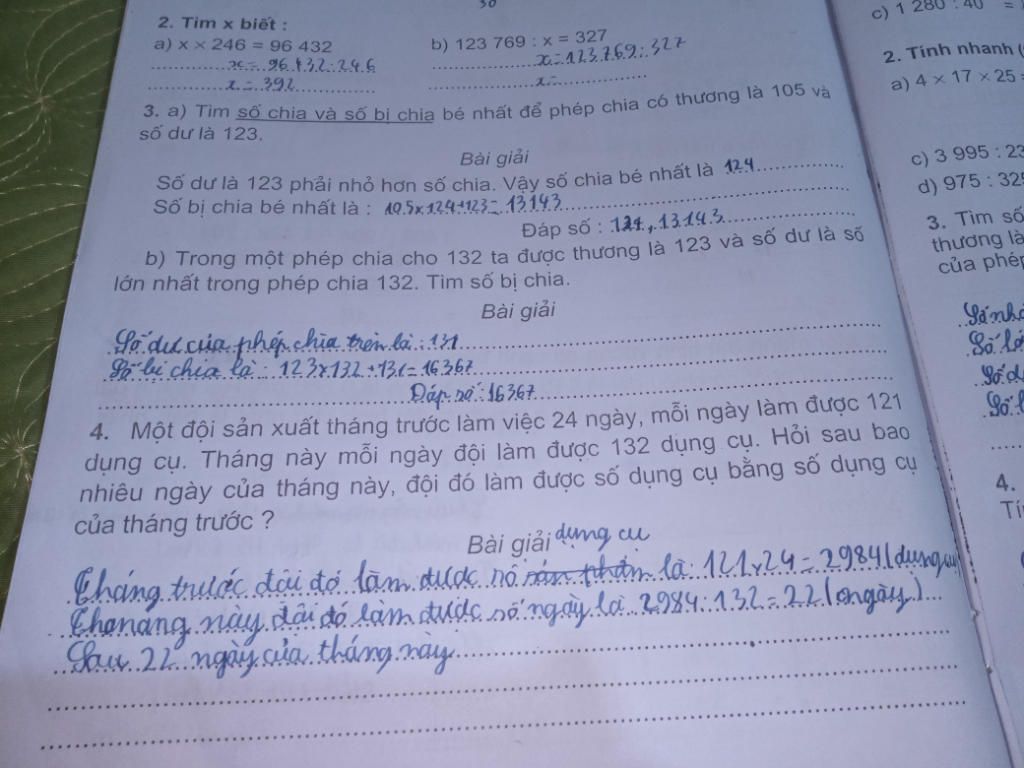 30
2. Tìm x biết :
a) x × 246 = 96 432
b) 123 769 : x = 327
x = 96432:246
x = 123769:327
x = 392
x =
3. a) Tìm số chia và số bị chia bé nhất để phép chia có thương là 105 và
số dư là 123.
Bài giải
Số dư là 123 phải nhỏ hơn số chia. Vậy số chia bé nhất là 124
Số bị chia bé nhất là : 105x124+123=13143
Đáp số : 124, 13143
b) Trong một phép chia cho 132 ta được thương là 123 và số dư là số
lớn nhất trong phép chia 132. Tìm số bị chia.
Bài giải
Số dư của phép chia trên là : 131
Số bị chia là : 123x132+131=16367
Đáp số : 16367
4. Một đội sản xuất tháng trước làm việc 24 ngày, mỗi ngày làm được 121
dụng cụ. Tháng này mỗi ngày đội làm được 132 dụng cụ. Hỏi sau bao
nhiêu ngày của tháng này, đội đó làm được số dụng cụ bằng số dụng cụ
của tháng trước ?
Bài giải
dụng cụ
Tháng trước đội đó làm được số là: 121x24=2984(dụng cụ
này đội đó làm được số ngày là 2984:132=22(ngày)
Sau 22 ngày của tháng này
c) 1 280 : 40 =
2. Tính nhanh (
a) 4 × 17 × 25
c) 3 995 : 23
d) 975 : 32
3. Tìm số
thương là
của phép
Số nh
Số lớ
Số d
Số
4.
Tí